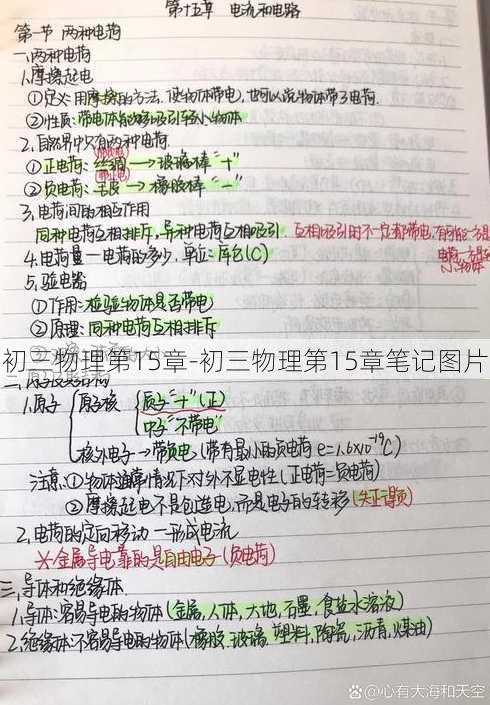 第十五章 电流和电路
第一节 两种电荷
一、两种电荷
1.摩擦起电
①定义:用摩擦的方法,使物体带电,也可以说物体带了电荷.
②性质:带电体能够吸引轻小物体
2.自然界中只有两种电荷
①正电荷:丝绸→玻璃棒"+"
②负电荷:毛皮→橡胶棒"-"
3.电荷间的相互作用
同种电荷互相排斥,异种电荷互相吸引.互相吸引时不一定都带电,有可能一方是
电荷一方是
小物体
4.电荷量—电荷的多少,单位:库仑(C)
5.验电器
①作用:检验物体是否带电
②原理:同种电荷互相排斥
初三物理第15章-初三物理第15章笔记图片
1.原子 原子核 质子"+"(正)
中子"不带电"
核外电子→带负电(带有最小的负电荷 e=1.6×10⁻¹⁹C)
注意:①物体通常情况下对外不显电性(正电荷=负电荷)
②摩擦起电不是创造电,而是电子的转移(失正得负)
2.电荷的定向移动—形成电流
※金属导电靠的是自由电子(负电荷)
三、导体和绝缘体
1.导体:容易导电的物体(金属,人体,大地,石墨,食盐水溶液)
2.绝缘体:不容易导电的物体(橡胶,玻璃,塑料,陶瓷,沥青,煤油)
@心有大海和天空